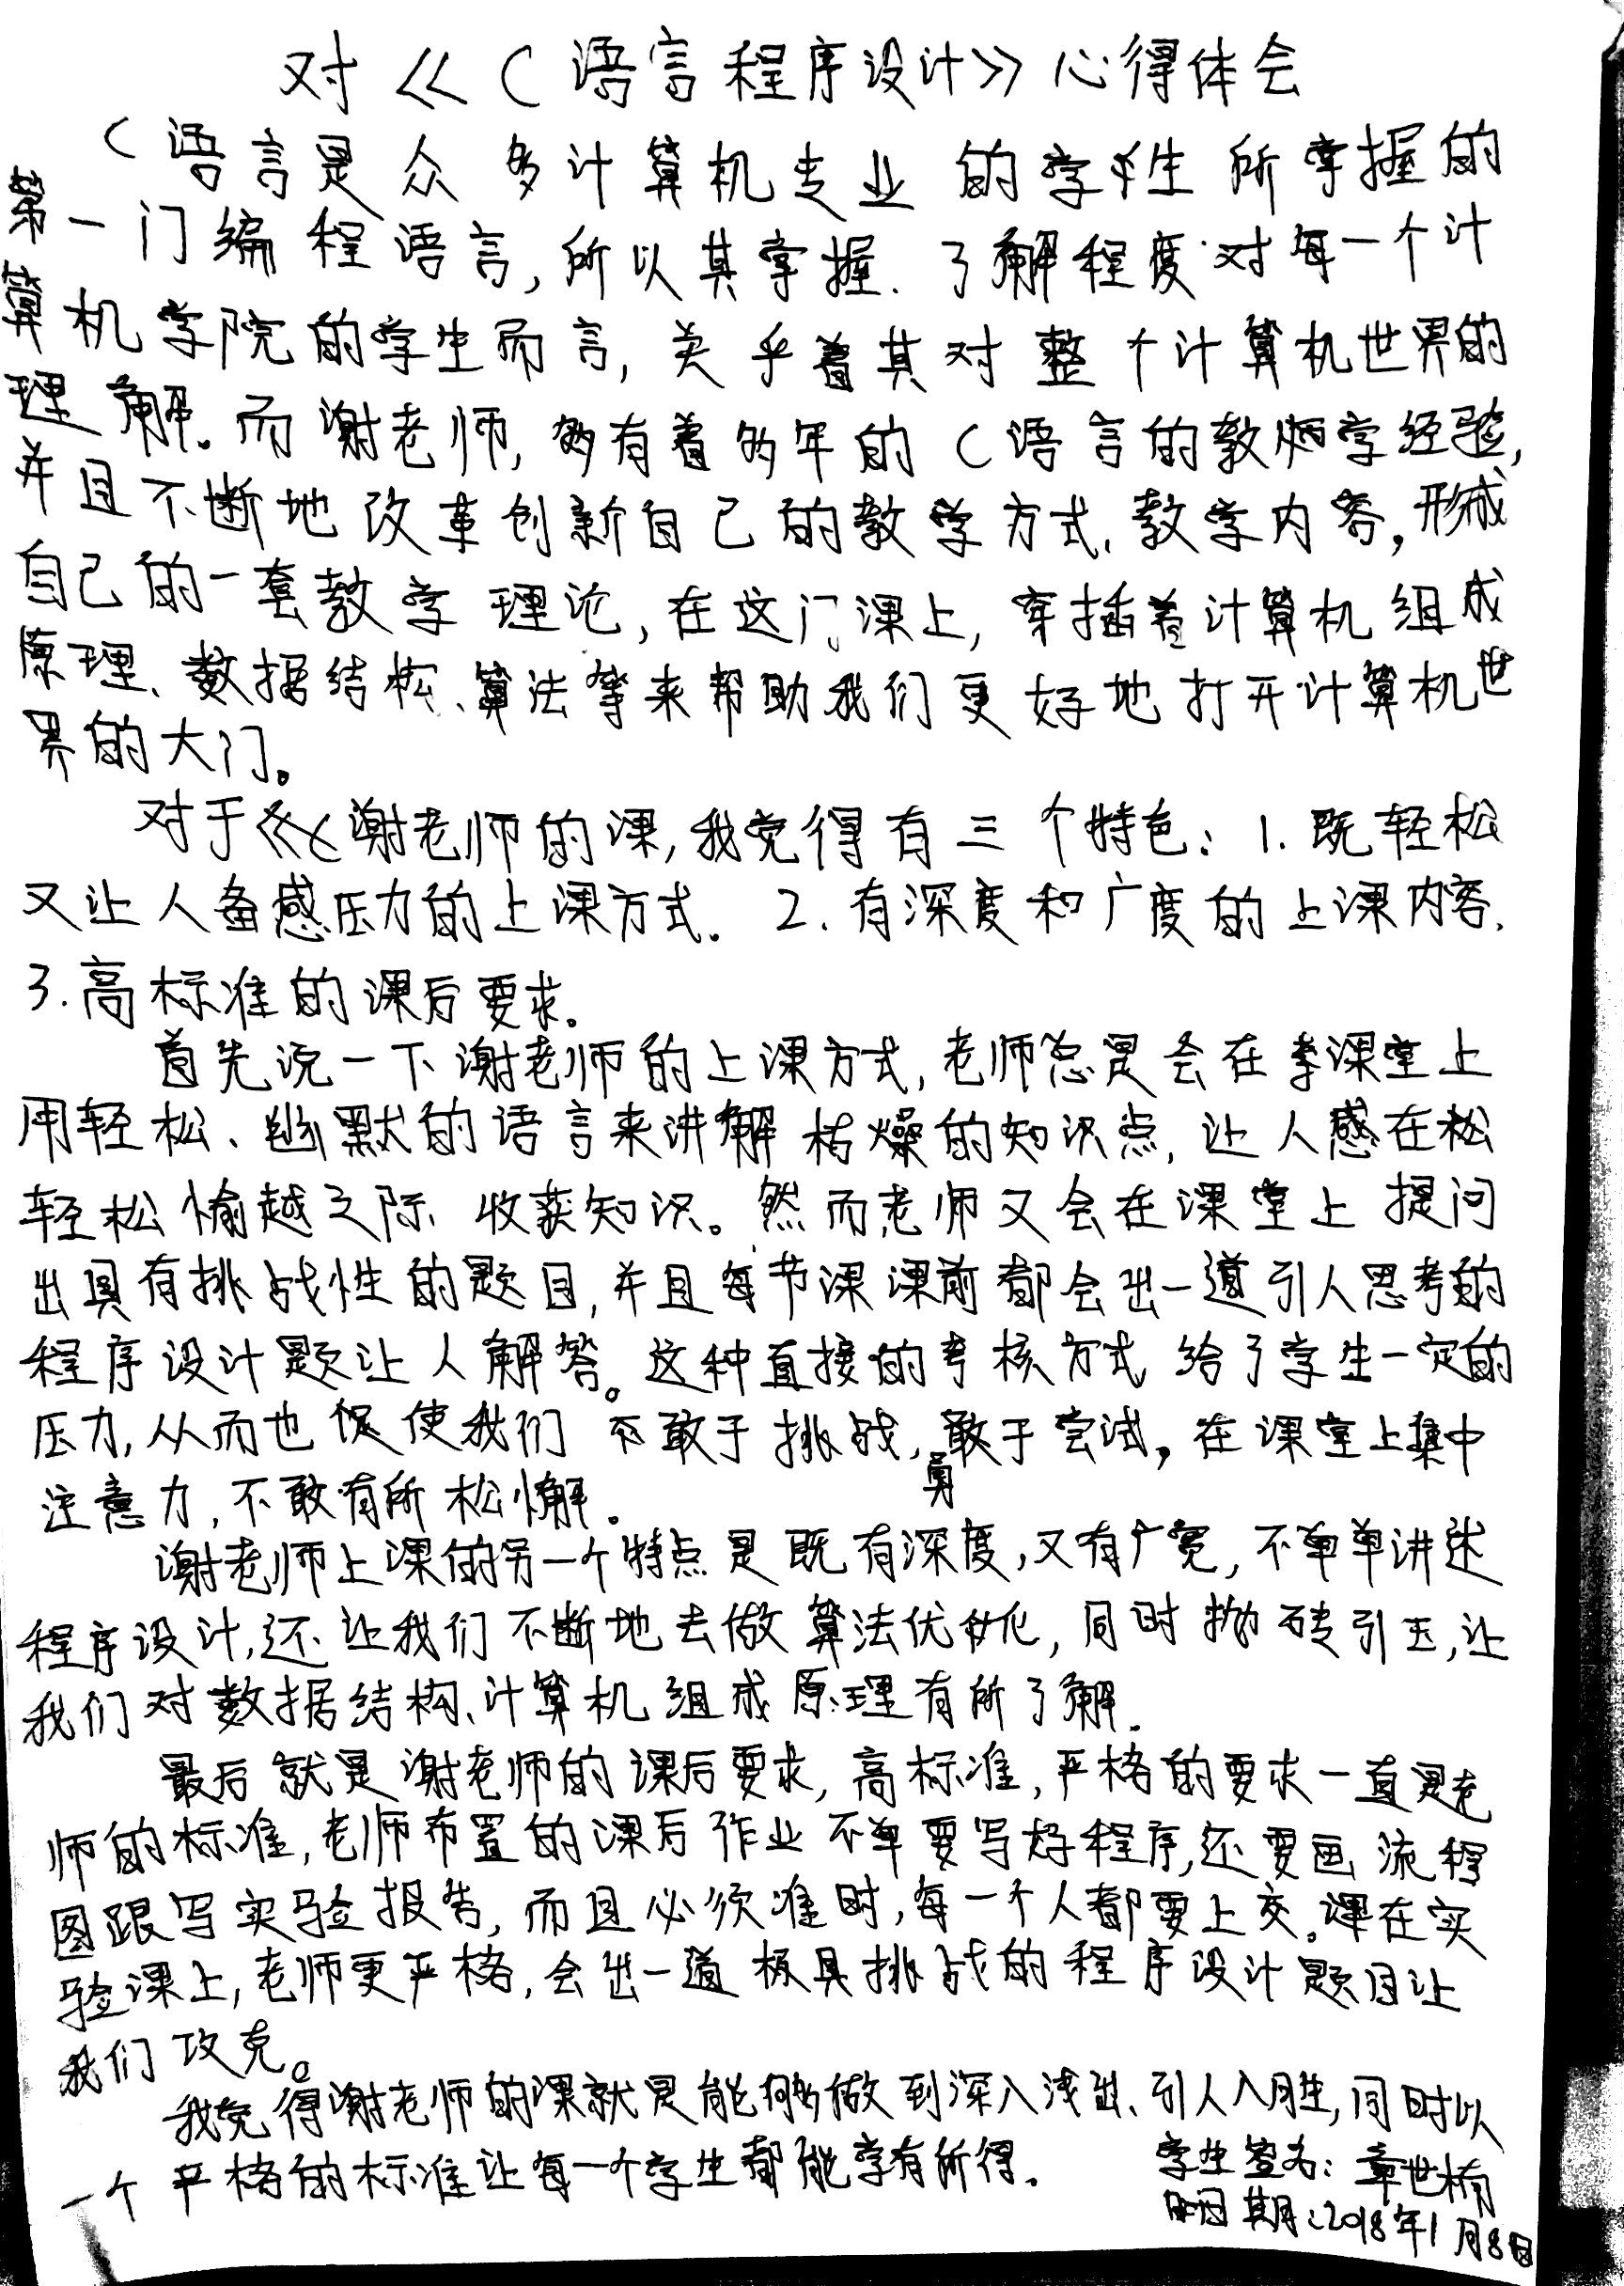 对《C语言程序设计》心得体会
C语言是众多计算机专业的学生所掌握的
第一门编程语言,所以其掌握、了解程度对每一个计
算机学院的学生而言,关乎着其对整个计算机世界的
理解。而谢老师,有着多年的C语言的教学经验,
并且不断地改革创新自己的教学方式、教学内容,形成
自己的一套教学理论,在这门课上,穿插着计算机组成
原理、数据结构、算法等来帮助我们更好地打开计算机世
界的大门。
对于谢老师的课,我觉得有三个特色:1.既轻松
又让人备感压力的上课方式。2.有深度和广度的上课内容.
3.高标准的课后要求。
首先说一下谢老师的上课方式,老师总是会在课堂上
用轻松、幽默的语言来讲解枯燥的知识点,让人感在松
轻松愉越之际、收获知识。然而老师又会在课堂上提问
出具有挑战性的题目,并且每节课课前都会出一道引人思考的
程序设计题让人解答。这种直接的考核方式给了学生一定的
压力,从而也促使我们敢于挑战,勇于尝试,在课堂上集中
注意力,不敢有所松懈。
谢老师上课的另一个特点是既有深度,又有广宽,不单单讲述
程序设计,还让我们不断地去做算法优化,同时抛砖引玉,让
我们对数据结构、计算机组成原理有所了解.
最后就是谢老师的课后要求,高标准,严格的要求一直是老
师的标准,老师布置的课后作业不单要写好程序,还要画流程
图跟写实验报告,而且必须准时,每一个人都要上交。在实
验课上,老师更严格,会出一道极具挑战的程序设计题目让
我们攻克。
我觉得谢老师的课就是能够做到深入浅出、引人入胜,同时以
一个严格的标准让每一个学生都能学有所得.
学生签名:章世楠
日期:2018年1月8日